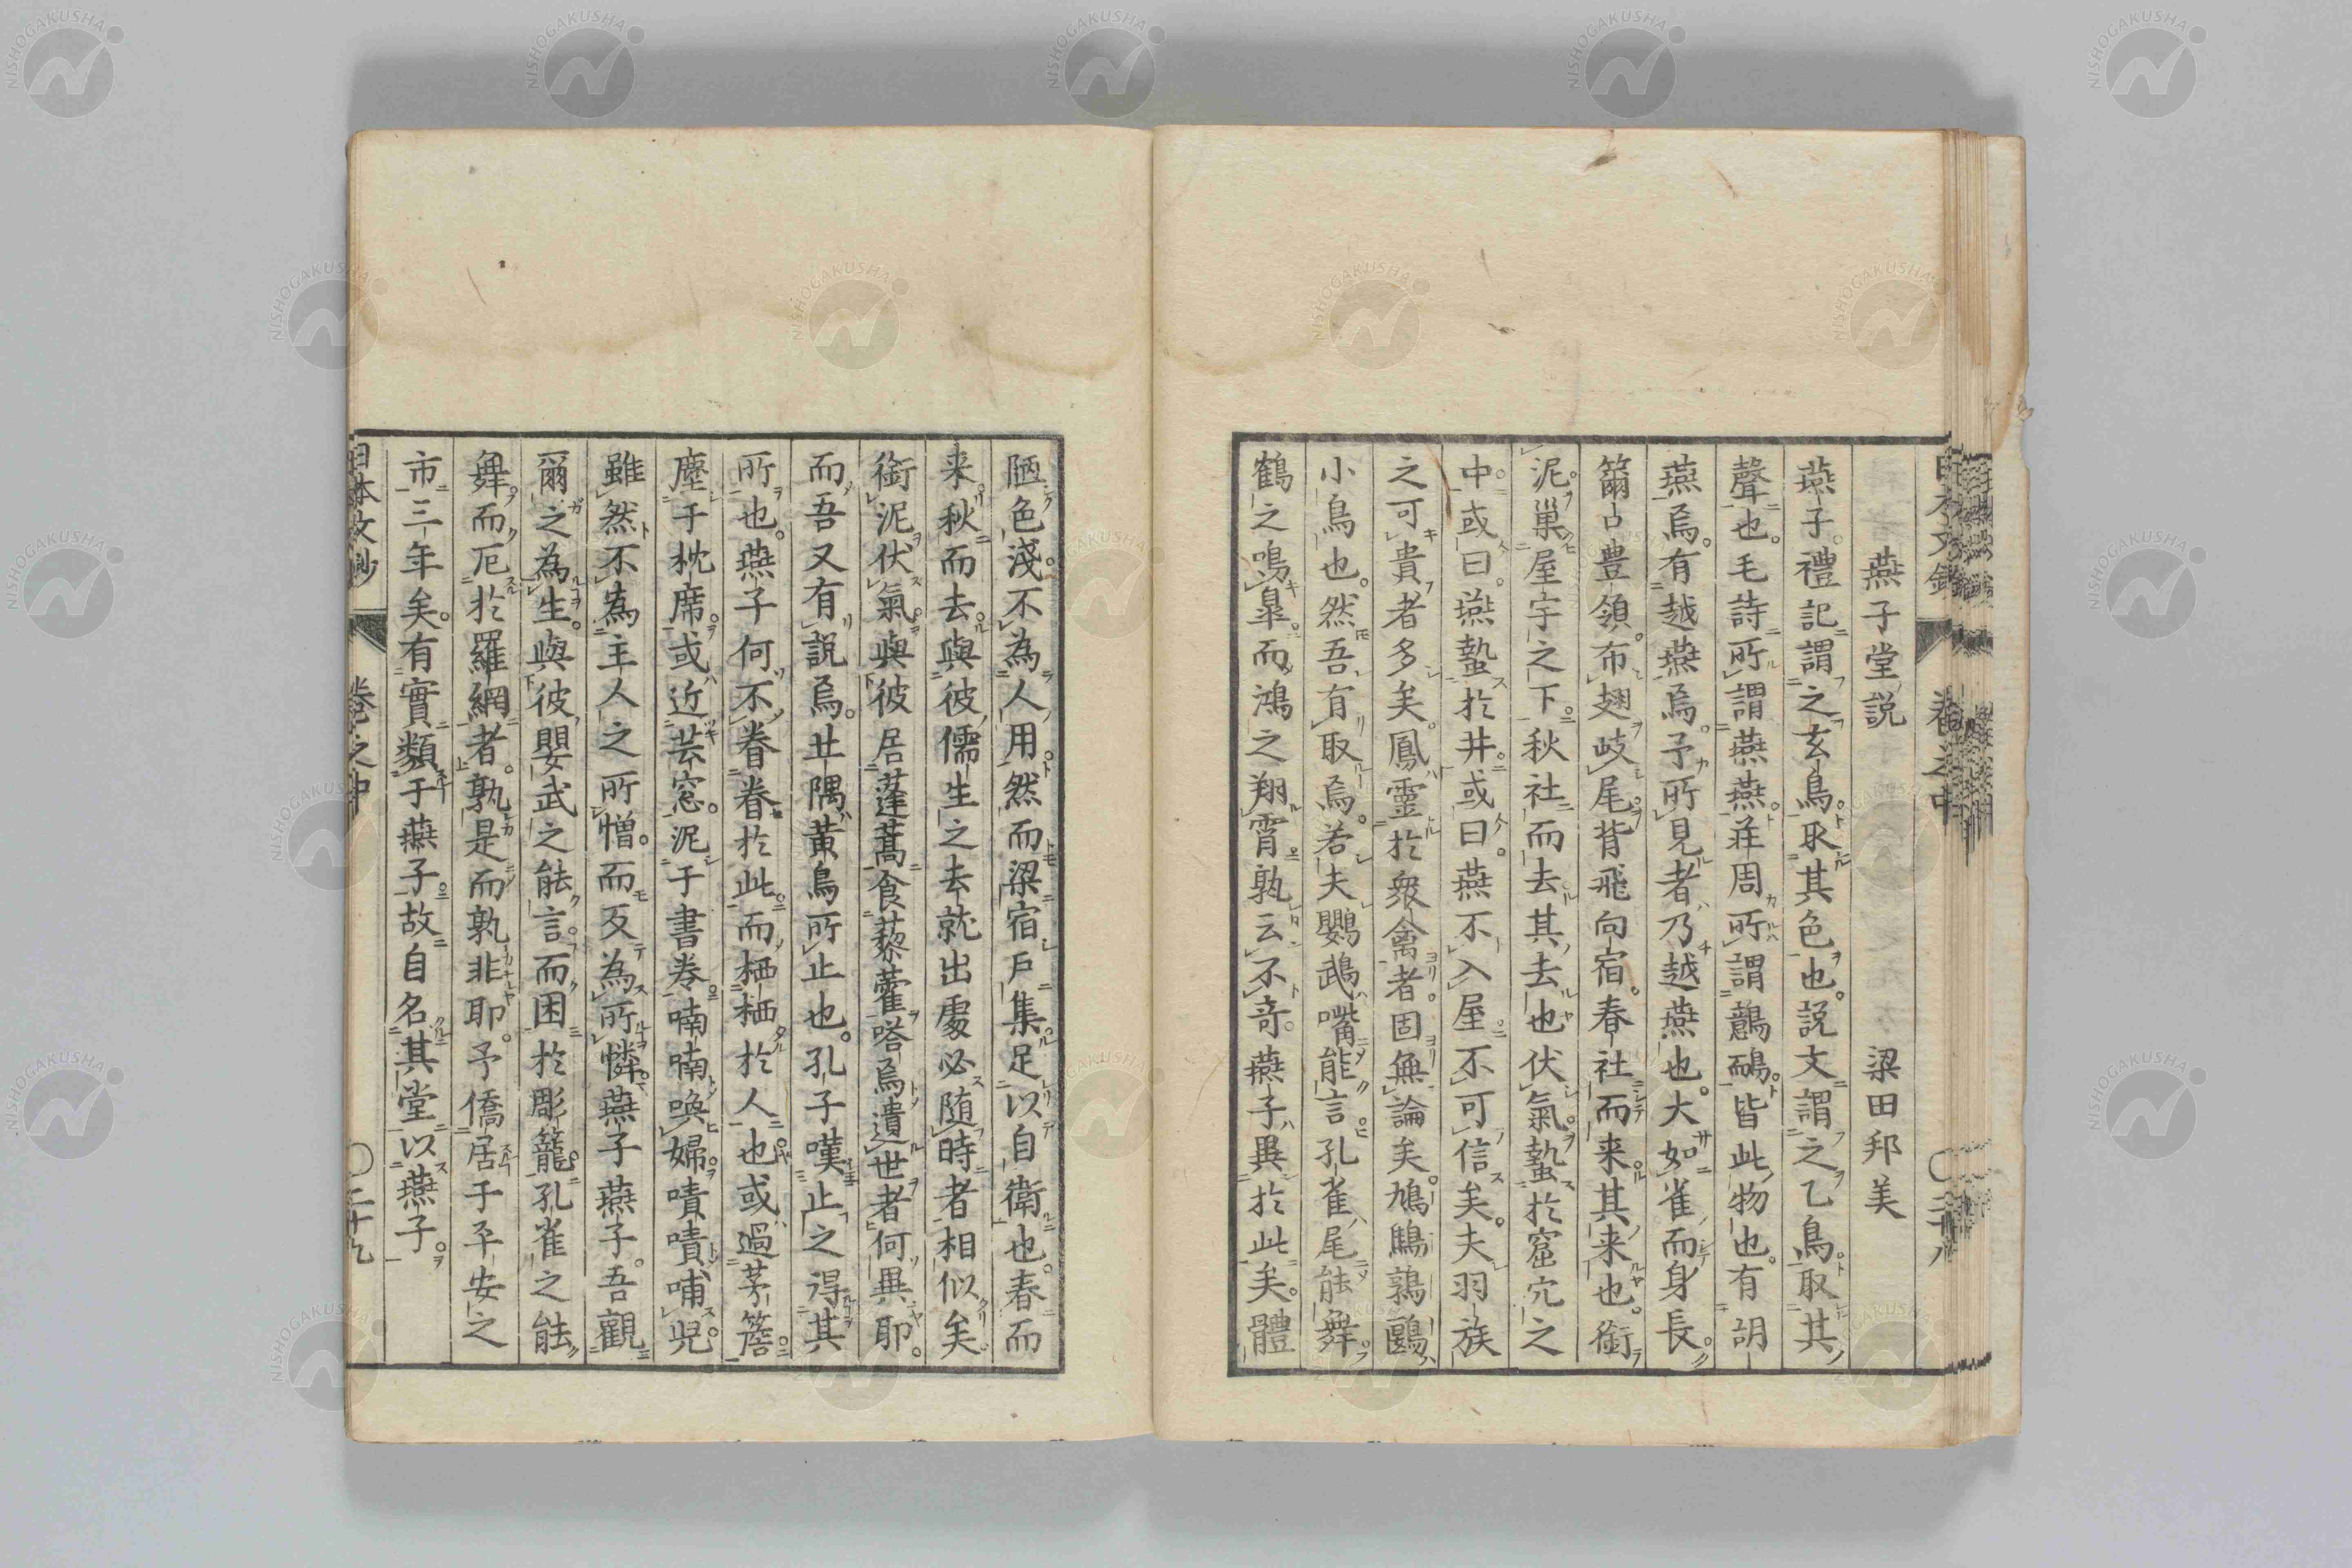 燕子堂説　梁田邦美
燕子。禮記謂之玄鳥。取其色也。説文謂之乙鳥。取其
聲也。毛詩所謂燕燕。莊周所謂鷾鴯。皆此物也。有胡
燕焉。有越燕焉。予所見者乃越燕也。大如雀而身長。
籋口豊領。布翅岐尾。背飛向宿。春社而来。其来也。銜
泥。巢屋宇之下。秋社而去。其去也伏氣。蟄於窟穴之
中。或曰。燕蟄於井。或曰。燕不入屋。不可信矣。夫羽族
之可貴者多矣。鳳靈於衆禽者。固無論矣。鳩鵰鶉鷗
小鳥也。然吾有取焉。若夫鸚鵡嘴能言。孔雀尾能舞。
鶴之鳴皐。而鴻之翔霄。孰云不奇。燕子異於此矣。體
陋色淺。不為人用。然而梁宿戶集。足以自衛也。春而
来。秋而去。與彼儒生之去就出處必随時者相似矣。
銜泥伏氣。與彼居蓬蒿食藜藿嗒焉遺世者何異耶。
而吾又有説焉。丠隅黃鳥所止也。孔子嘆止之得其
所也。燕子何不眷眷於此。而栖栖於人也。或過茅簷。
塵于枕席。或近芸窓。泥于書卷。喃喃喚婦。嘖嘖哺兒。
雖然不為主人之所憎。而反為所憐。燕子燕子。吾觀
爾之為生。與彼嬰武之能言。而困於彫籠。孔雀之能
舞。而厄於羅網者。孰是而孰非耶。予僑居于平安之
市三年矣。有實類于燕子。故自名其堂以燕子。
日本文鈔　卷之中　〇二十八
日本文鈔　卷之中　〇二十九
NISHOGAKUSHA